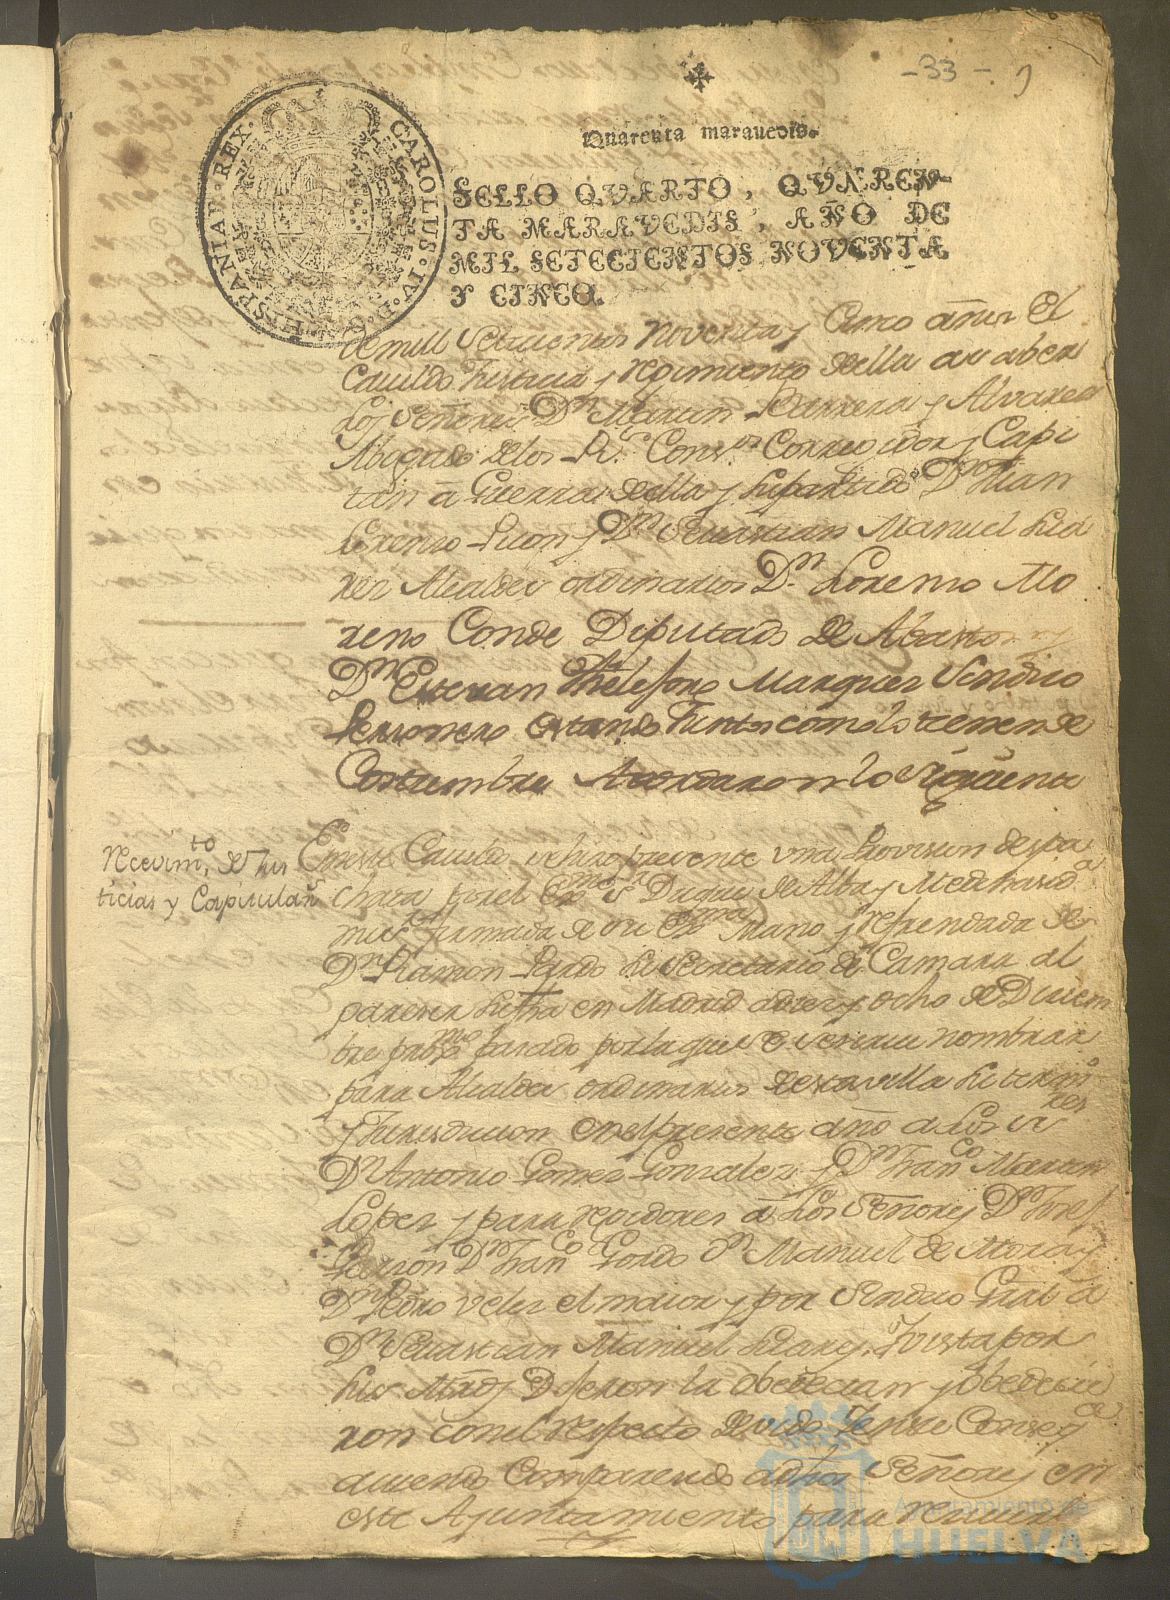 -33-
Quarenta marauedis.
HISPANIAR·REX· CAROLUS·IV·D·G·
SELLO QVARTO, QVAREN-
TA MARAVEDIS, AÑO DE
MIL SETECIENTOS NOVENTA
Y CINCO.
de mill Setecientos Noventa y Cinco años El
Cauildo Justicia y regimiento de ella as aber
los Señores Dn Martin Barrera y Alvarez
Abogado de los Rs. Consos Correxidor y Capi
tan a Guerra de ella y su partido Dn Juan
Lorenzo Leon y Dn Sevastian Manuel
Alcaldes ordinarios Dn Lorenzo Mo
reno Conde Diputado de Abastos y
Dn Estevan Thelesforo Marquez Sindico
Personero estando Juntos como lo tienen de
Costumbre Acordaron lo Siguiente
recevimto. de Jus
ticias y Capitulars
En este Cauildo se hizo presente una Provision despa
chada por el Exmo Sr Duque de Alba y Medinasida
firmada de su Exma Mano y refrendada de
Dn Ramon Pardo su Secretario de Camara al
parecer su fha en Madrid a diez y ocho de Diciem
bre proxmo pasado por la que se sirve nombrar
para Alcaldes ordinarios de esta villa su termo
y Jurisdicion en el presente año a los Sres
Dn Antonio Gomez Gonzalez y Dn Franco Martin
Lopez y para regidores a los Señores Dn Josef
Dn Franco Gordo Dn Manuel de Mora y
Dn Pedro Velez el maior y por Sindico Gral a
Dn Sevastian Manuel y vista por
sus Mrds Dijeron la obedecian y obedecie
ron con el respecto devido y en su Conseqa
aviendo Comparecido dhos Señores en
este Ayuntamiento para recivir
Ayuntamiento de
HUELVA